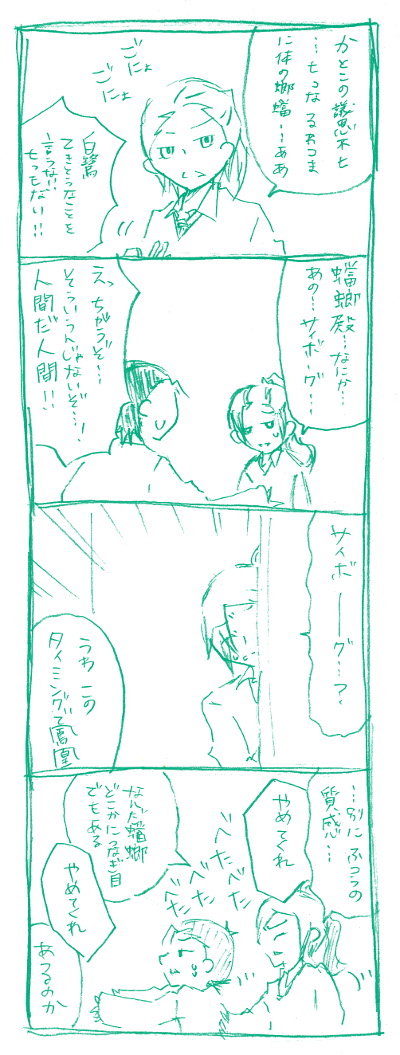 かとこの議思不七
に体の螂蟷…ああ
ごにょ
ごにょ
白鷺
てきとうなことを
言うな!!
七つもない!!
蟷螂殿…なにか…
あの…サイボーグ…
えっちがうぞ…
そういうんじゃないぞ…!
人間だ人間!!
サイボーグ…フィ
うわ この
タイミングで鳳凰
…別にふつうの
質感…
やめてくれ
べた
べた
べた
べた
なんだ蟷螂
どこかにつなぎ目
でもある
やめてくれ
あるのか